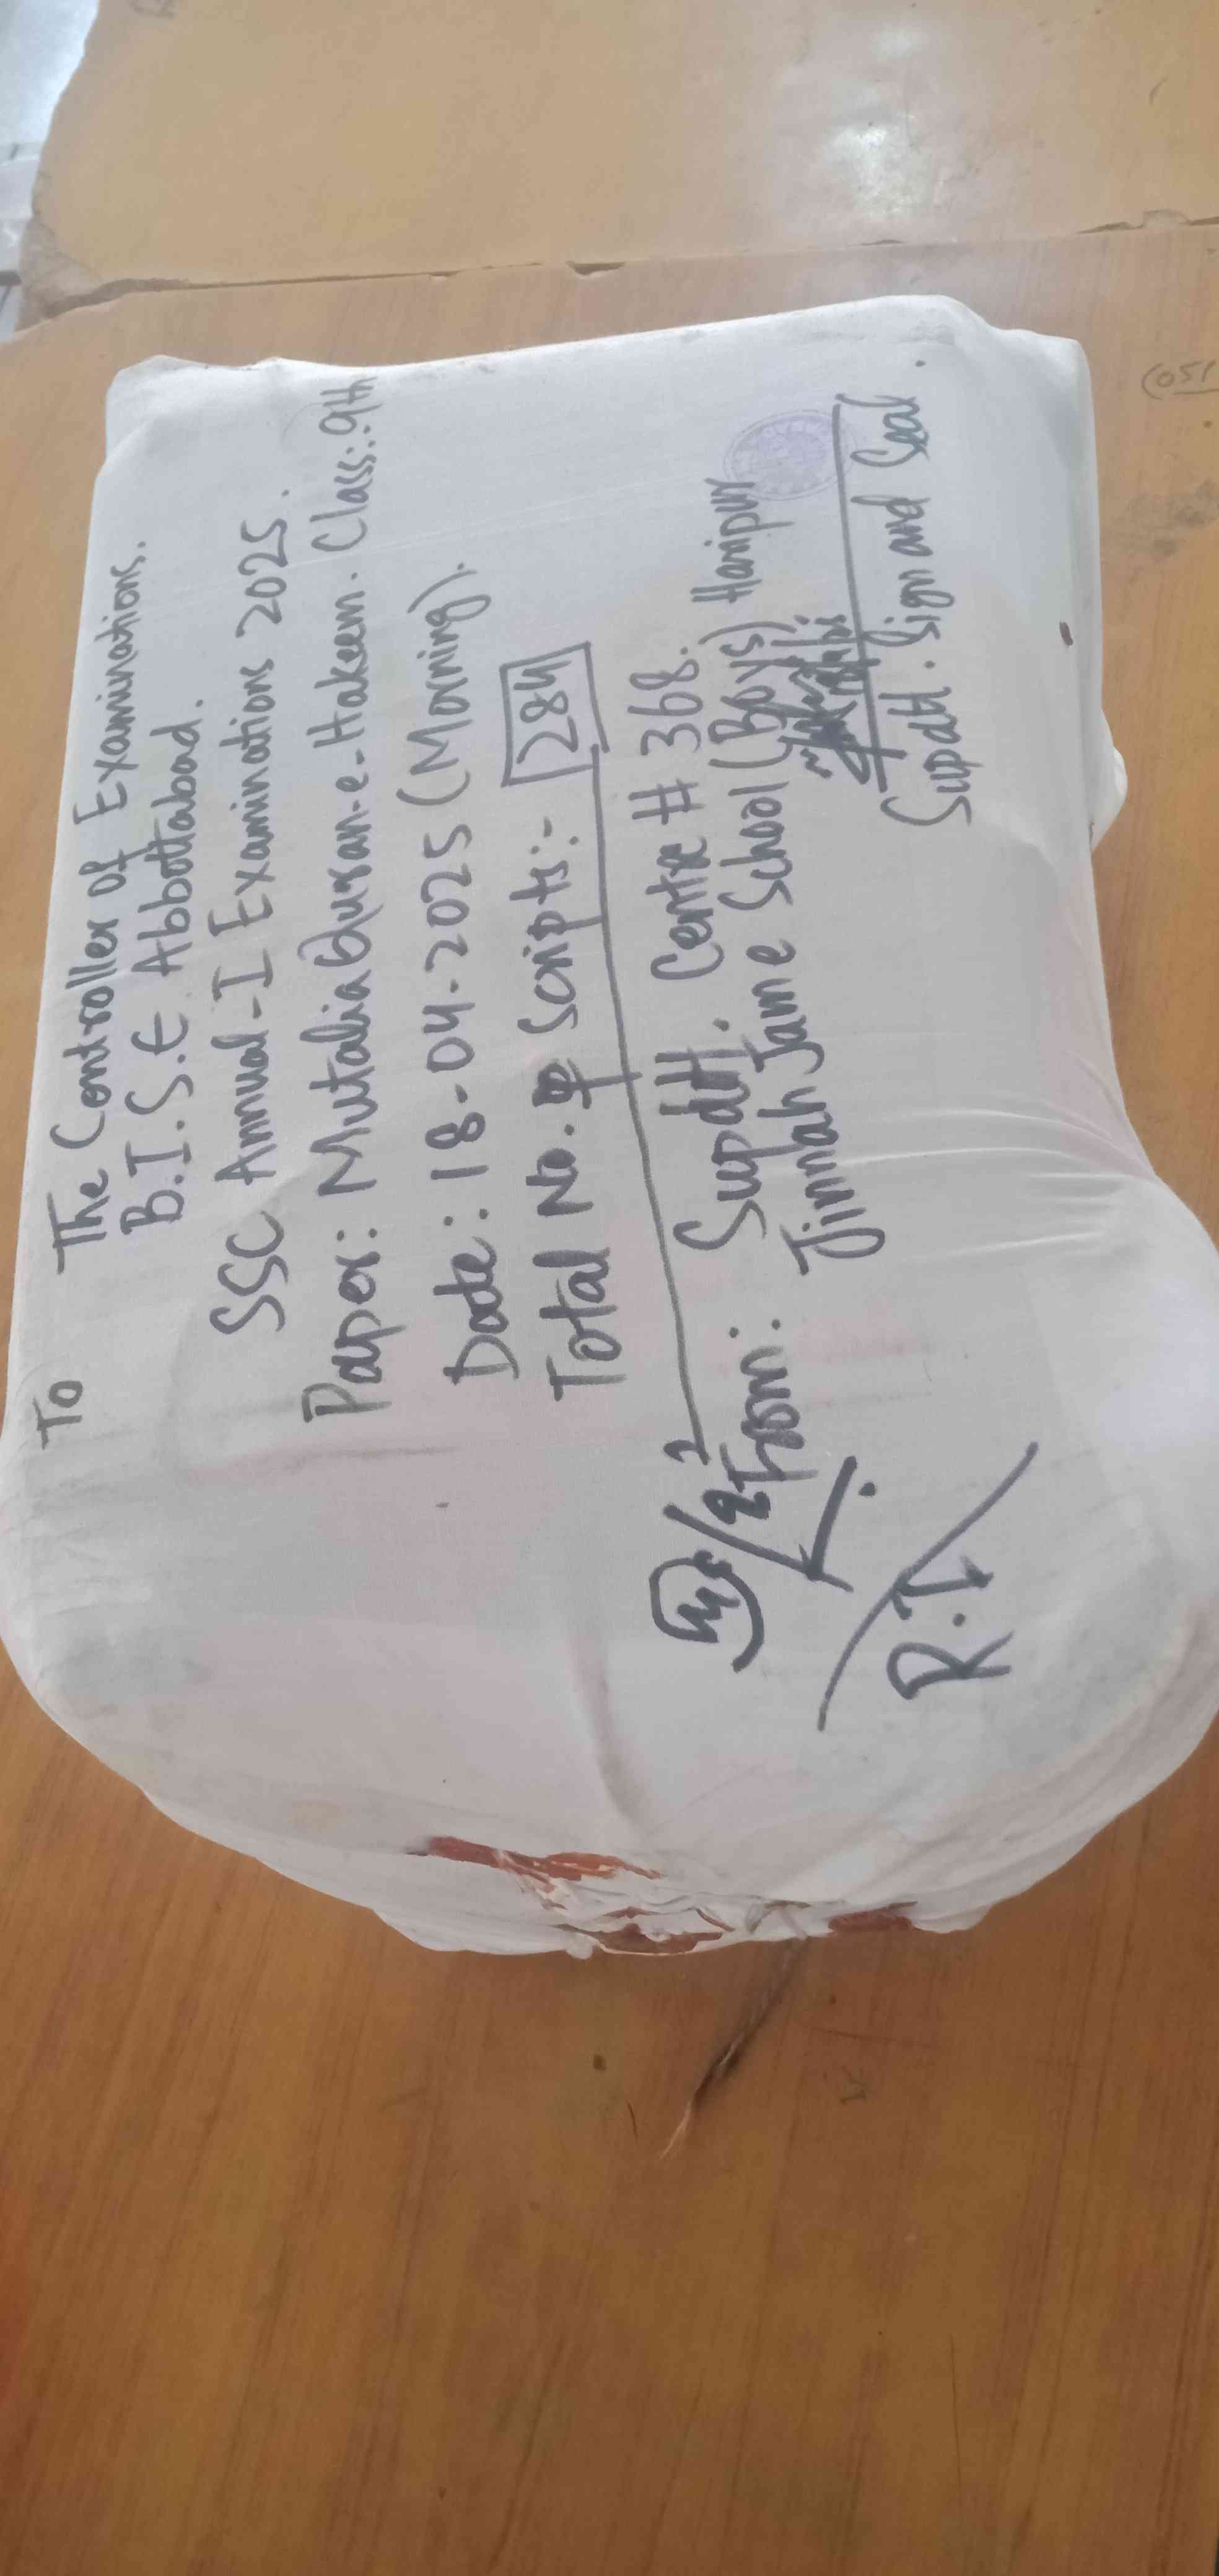 To
The Controller of Examinations.
B.I.S.E Abbottabad.
SSC Annual-I Examinations 2025.
Paper: Mutalia Quran-e-Hakeem. Class: 9th
Date: 18-04-2025 (Morning).
Total No. of Scripts:- 284
From: Supdtt. Centre # 368.
Jinnah Jame School (Boys) Haripur
Supdtt. Sign and Seal.
R.I
(051